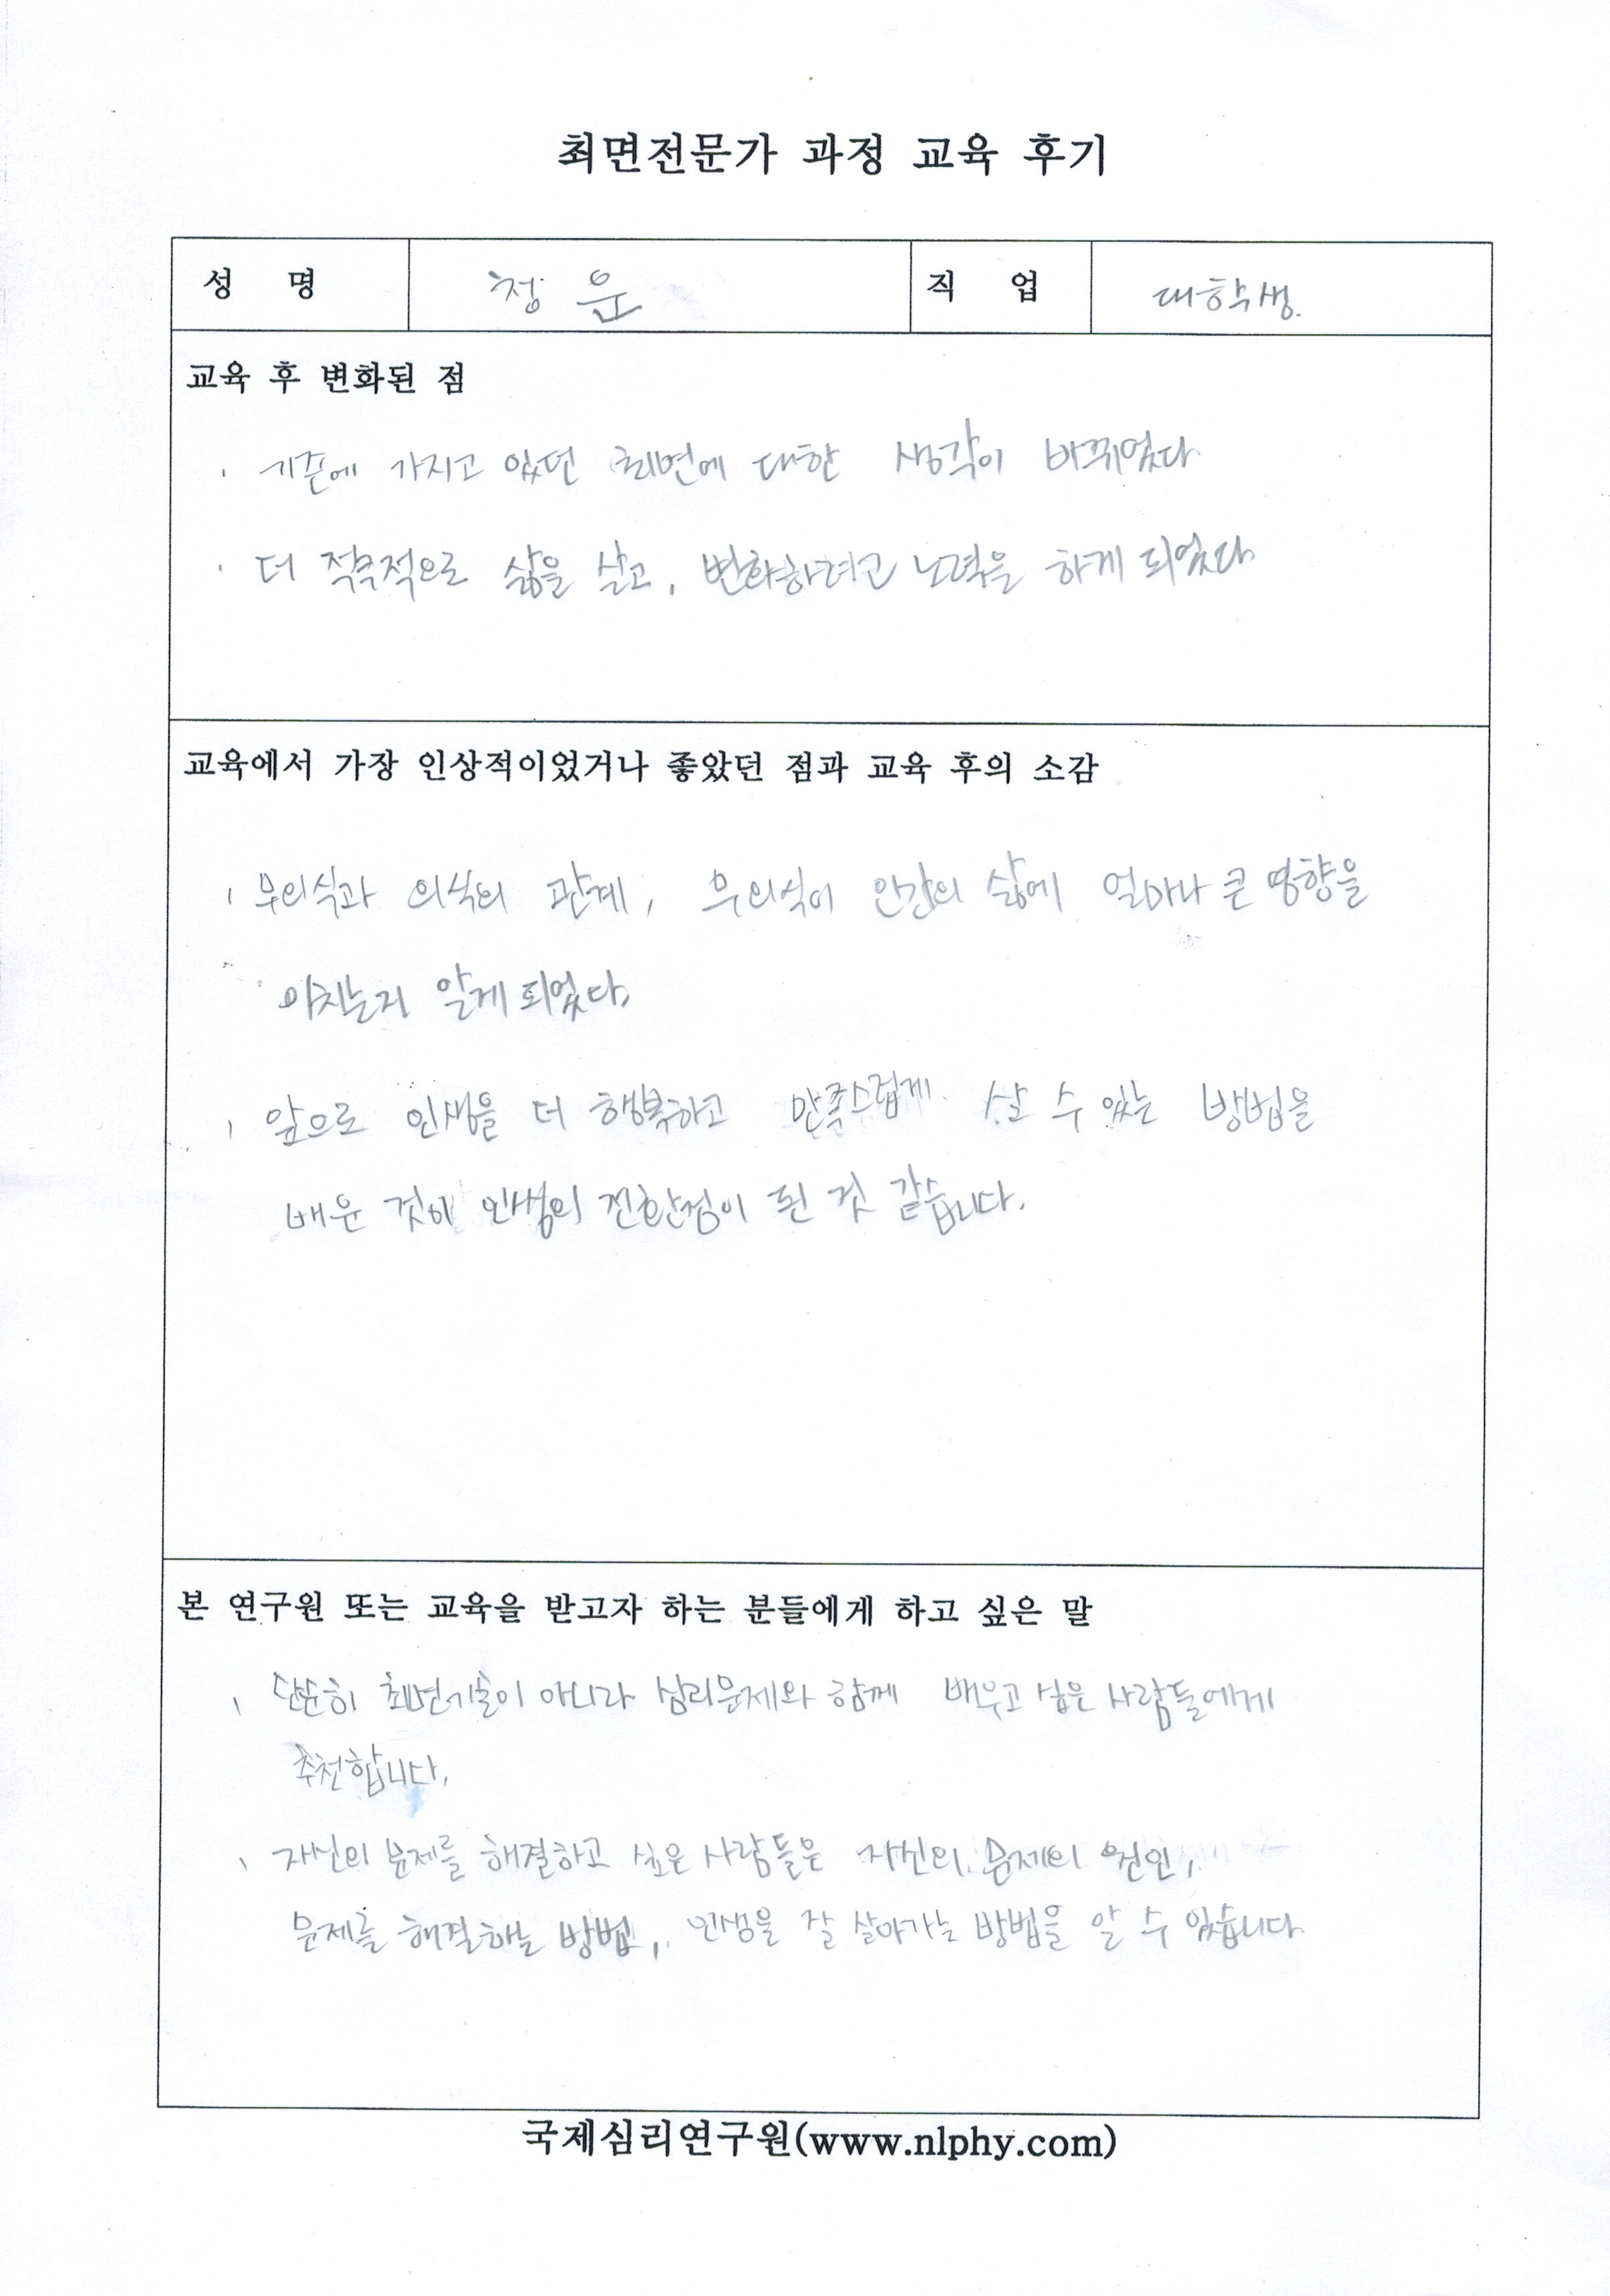 최면전문가 과정 교육 후기
성 명 청 운 직 업 대학생.
교육 후 변화된 점
기존에 가지고 있던 최면에 대한 생각이 바뀌었다
더 적극적으로 삶을 살고, 변화하려고 노력을 하게 되었다
교육에서 가장 인상적이었거나 좋았던 점과 교육 후의 소감
무의식과 의식의 관계, 무의식이 인간의 삶에 얼마나 큰 영향을
미치는지 알게 되었다.
앞으로 인생을 더 행복하고 만족스럽게 살 수 있는 방법을
배운 것이 인생의 전환점이 된 것 같습니다.
본 연구원 또는 교육을 받고자 하는 분들에게 하고 싶은 말
단순히 최면기술이 아니라 심리문제와 함께 배우고 싶은 사람들에게
추천합니다.
자신의 문제를 해결하고 싶은 사람들은 자신의 문제의 원인,
문제를 해결하는 방법, 인생을 잘 살아가는 방법을 알 수 있습니다
국제심리연구원(www.nlphy.com)